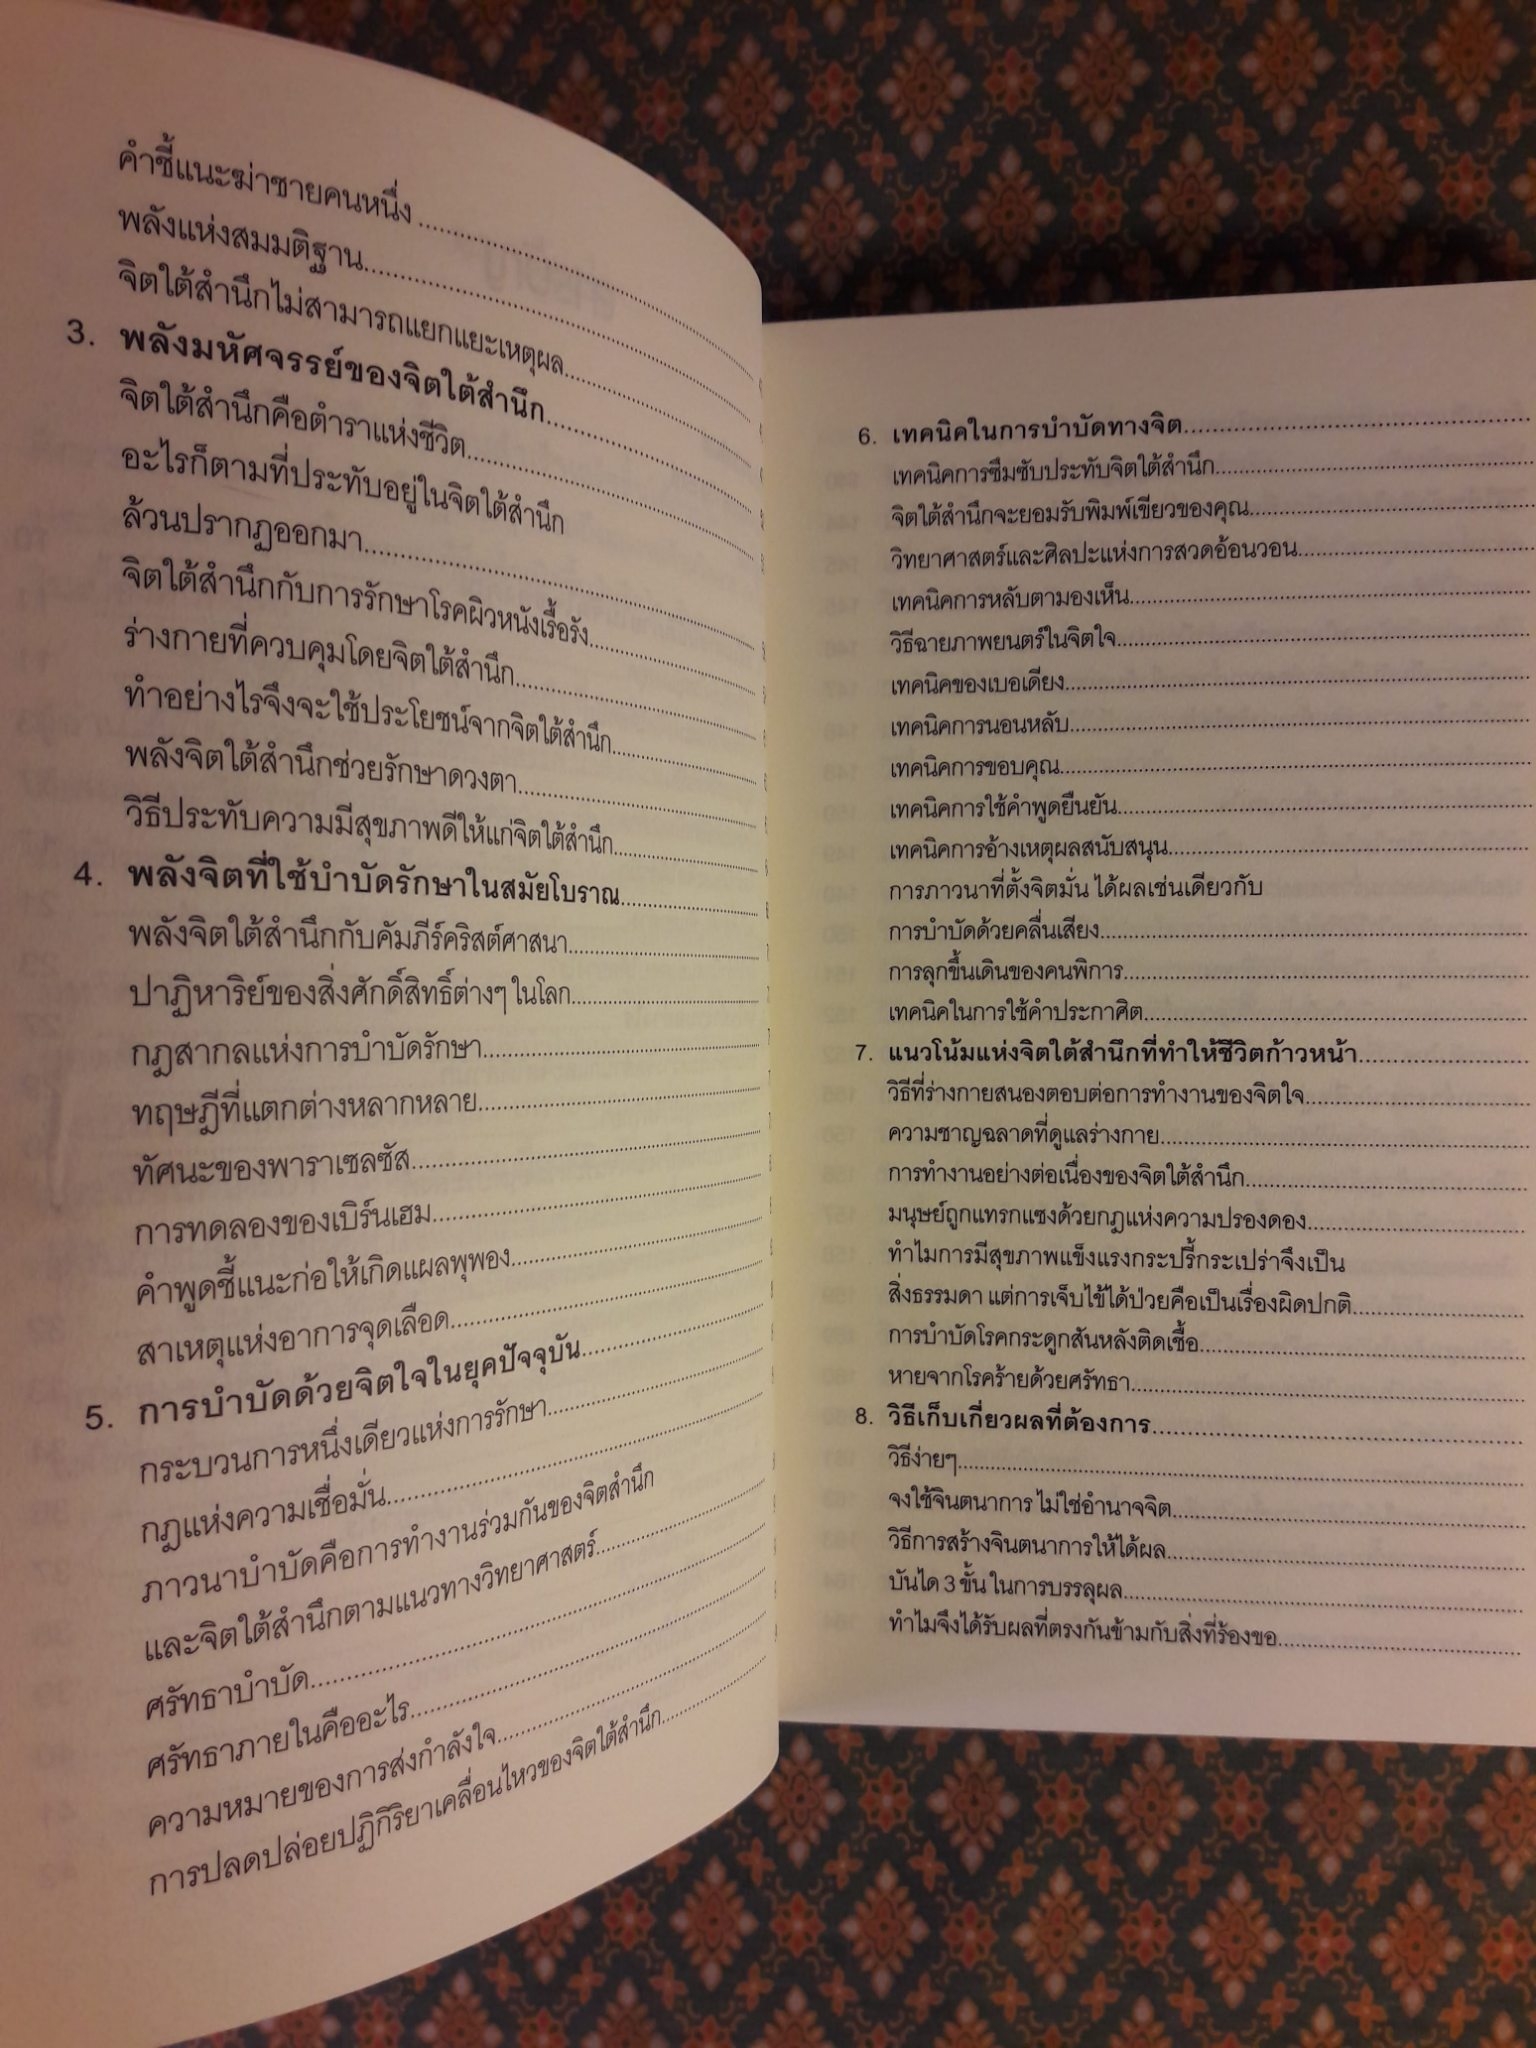 คำชี้แนะฆ่าชายคนหนึ่ง
พลังแห่งสมมติฐาน
จิตใต้สำนึกไม่สามารถแยกแยะเหตุผล
3. พลังมหัศจรรย์ของจิตใต้สำนึก
จิตใต้สำนึกคือตำราแห่งชีวิต
อะไรก็ตามที่ประทับอยู่ในจิตใต้สำนึก
ล้วนปรากฏออกมา
จิตใต้สำนึกกับการรักษาโรคผิวหนังเรื้อรัง
ร่างกายที่ควบคุมโดยจิตใต้สำนึก
ทำอย่างไรจึงจะใช้ประโยชน์จากจิตใต้สำนึก
พลังจิตใต้สำนึกช่วยรักษาดวงตา
วิธีประทับความมีสุขภาพดีให้แก่จิตใต้สำนึก
4. พลังจิตที่ใช้บำบัดรักษาในสมัยโบราณ
พลังจิตใต้สำนึกกับคัมภีร์คริสต์ศาสนา
ปาฏิหาริย์ของสิ่งศักดิ์สิทธิ์ต่างๆ ในโลก
กฎสากลแห่งการบำบัดรักษา
ทฤษฎีที่แตกต่างหลากหลาย
ทัศนะของพาราเซลซัส
การทดลองของเบิร์นเฮม
คำพูดชี้แนะก่อให้เกิดแผลพุพอง
สาเหตุแห่งอาการจุดเลือด
5. การบำบัดด้วยจิตใจในยุคปัจจุบัน
กระบวนการหนึ่งเดียวแห่งการรักษา
กฎแห่งความเชื่อมั่น
ภาวนาบำบัดคือการทำงานร่วมกันของจิตสำนึก
และจิตใต้สำนึกตามแนวทางวิทยาศาสตร์
ศรัทธาบำบัด
ศรัทธาภายในคืออะไร
ความหมายของการส่งกำลังใจ
การปลดปล่อยปฏิกิริยาเคลื่อนไหวของจิตใต้สำนึก
6. เทคนิคในการบำบัดทางจิต
เทคนิคการซึมซับประทับจิตใต้สำนึก
จิตใต้สำนึกจะยอมรับพิมพ์เขียวของคุณ
วิทยาศาสตร์และศิลปะแห่งการสวดอ้อนวอน
เทคนิคการหลับตามองเห็น
วิธีฉายภาพยนตร์ในจิตใจ
เทคนิคของเบอเดียง
เทคนิคการนอนหลับ
เทคนิคการขอบคุณ
เทคนิคการใช้คำพูดยืนยัน
เทคนิคการอ้างเหตุผลสนับสนุน
การภาวนาที่ตั้งจิตมั่น ได้ผลเช่นเดียวกับ
การบำบัดด้วยคลื่นเสียง
การลุกขึ้นเดินของคนพิการ
เทคนิคในการใช้คำประกาศิต
7. แนวโน้มแห่งจิตใต้สำนึกที่ทำให้ชีวิตก้าวหน้า
วิธีที่ร่างกายสนองตอบต่อการทำงานของจิตใจ
ความชาญฉลาดที่ดูแลร่างกาย
การทำงานอย่างต่อเนื่องของจิตใต้สำนึก
มนุษย์ถูกแทรกแซงด้วยกฎแห่งความปรองดอง
ทำไมการมีสุขภาพแข็งแรงกระปรี้กระเปร่าจึงเป็น
สิ่งธรรมดา แต่การเจ็บไข้ได้ป่วยคือเป็นเรื่องผิดปกติ
การบำบัดโรคกระดูกสันหลังติดเชื้อ
หายจากโรคร้ายด้วยศรัทธา
8. วิธีเก็บเกี่ยวผลที่ต้องการ
วิธีง่ายๆ
จงใช้จินตนาการ ไม่ใช่อำนาจจิต
วิธีการสร้างจินตนาการให้ได้ผล
บันได 3 ขั้น ในการบรรลุผล
ทำไมจึงได้รับผลที่ตรงกันข้ามกับสิ่งที่ร้องขอ